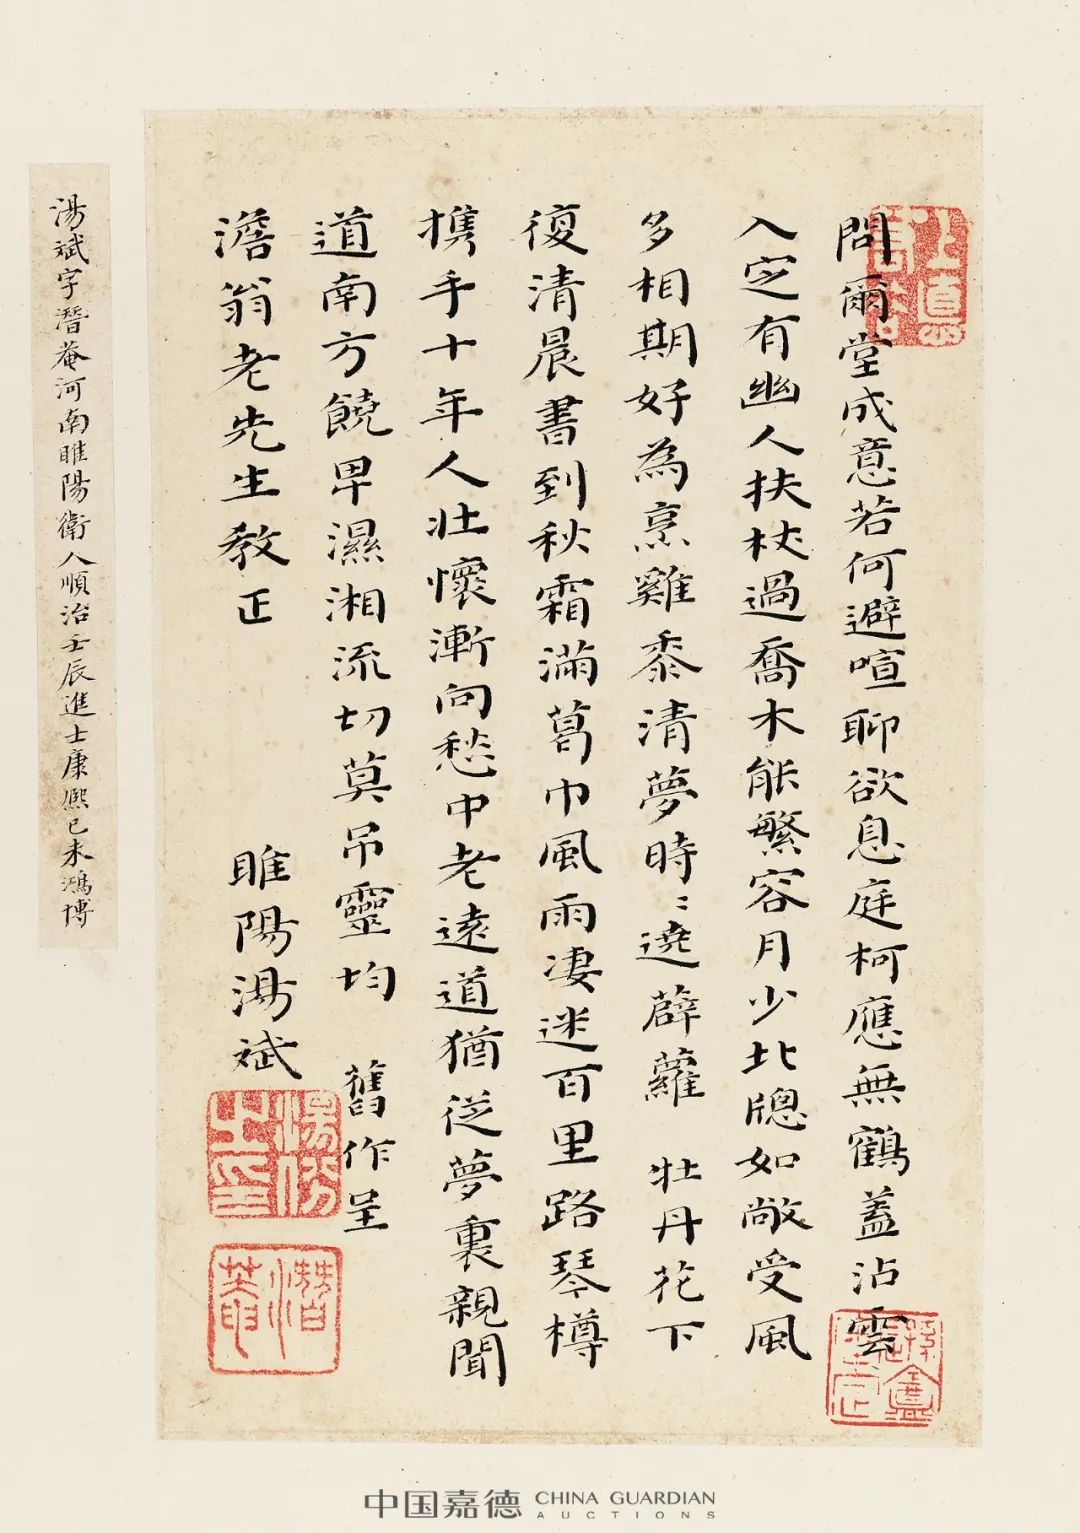 問爾堂成意若何避喧聊欲息庭柯應無鶴蓋沾雲
入定有幽人扶杖過喬木能繁容月少北牕如敞受風
多相期好為烹雞黍清夢時〻遶薜蘿 牡丹花下
復清晨書到秋霜滿葛巾風雨淒迷百里路琴樽
携手十年人壯懷漸向愁中老遠道猶從夢裏親聞
道南方饒卑濕湘流切莫吊靈均 舊作呈
澹翁老先生教正
睢陽湯斌
湯斌之印
潛菴
湯斌字潛菴河南睢陽衛人順治壬辰進士康熙己未鴻博
中国嘉德 CHINA GUARDIAN
AUCTIONS